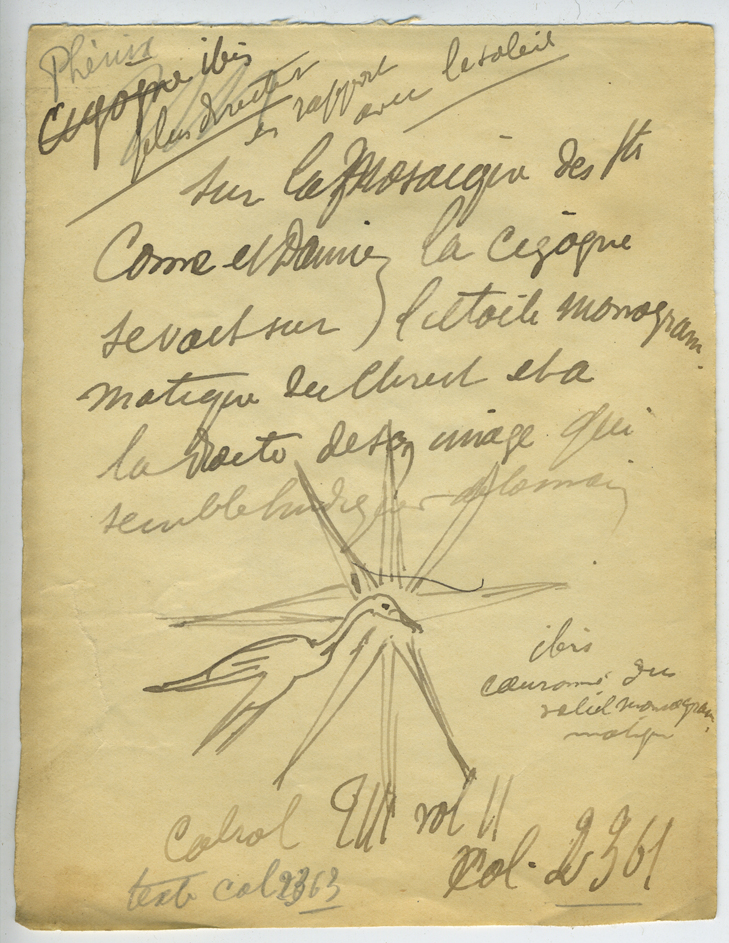 Phénix
Cygogne ibis
plus directe
en rapport
avec le soleil
sur la Mosaique des Sts
Come et Damien la cigogne
se voit sur l'etoile monogram
matique du Christ et a
la droite de son image qui
semble l'indiquer de la main
ibis
couronné du
soleil monogram
matique
Cabrol III vol II
Col. 2361
texte col 2363